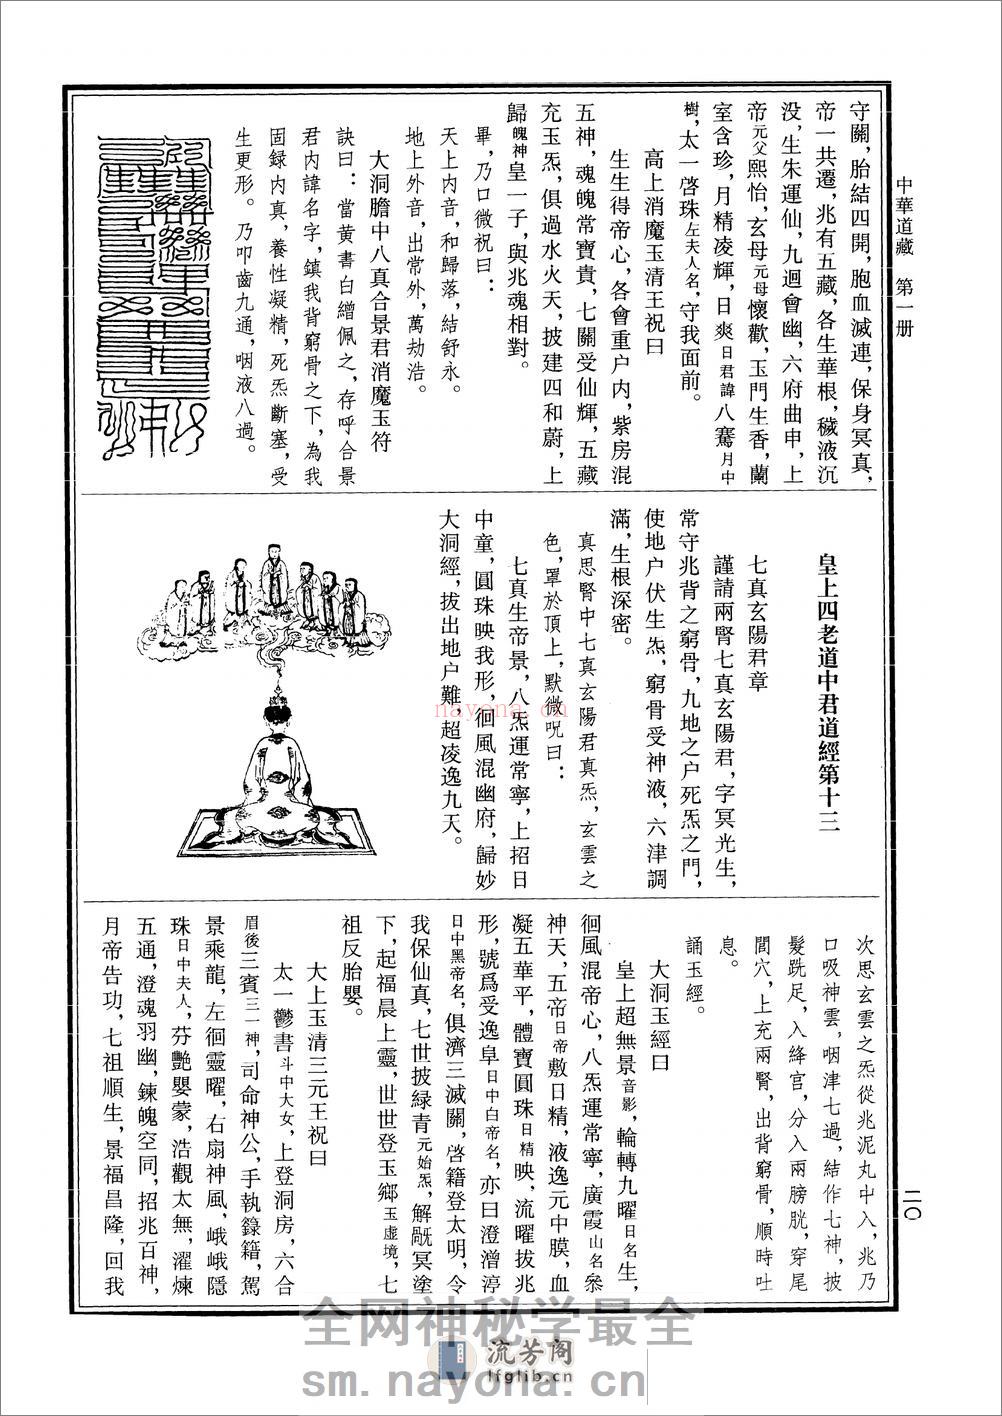 中華道藏　第一册
二〇
守關，胎結四開，胞血滅連，保身冥真，
帝一共遷，兆有五藏，各生華根，穢液沉
没，生朱運仙，九迴會幽，六府曲申，上
帝元父熙怡，玄母元母懷歡，玉門生香，蘭
室含珍，月精凌輝，日爽日君諱八騫月中
樹，太一啓珠左夫人名，守我面前。
高上消魔玉清王祝曰
生生得帝心，各會重户内，紫房混
五神，魂魄常寶貴，七關受仙輝，五藏
充玉炁，俱過水火天，披建四和蔚，上
歸魄神皇一子，與兆魂相對。
畢，乃口微祝曰：
天上内音，和歸落，結舒永。
地上外音，出常外，萬劫浩。
大洞膽中八真合景君消魔玉符
訣曰：當黄書白繒佩之，存呼合景
君内諱名字，鎮我背窮骨之下，為我
固録内真，養性凝精，死炁斷塞，受
生更形。乃叩齒九通，咽液八過。
皇上四老道中君道經第十三
七真玄陽君章
謹請兩腎七真玄陽君，字冥光生，
常守兆背之窮骨，九地之户死炁之門，
使地户伏生炁，窮骨受神液，六津調
滿，生根深密。
真思腎中七真玄陽君真炁，玄雲之
色，罩於頂上，默微呪曰：
七真生帝景，八炁運常寧，上招日
中童，圓珠映我形，徊風混幽府，歸妙
大洞經，拔出地户難，超凌逸九天。
次思玄雲之炁從兆泥丸中入，兆乃
口吸神雲，咽津七過，結作七神，披
髮跣足，入絳宫，分入兩膀胱，穿尾
閭穴，上充兩腎，出背窮骨，順時吐
息。
誦玉經。
大洞玉經曰
皇上超無景音影，輪轉九曜日名生，
徊風混帝心，八炁運常寧，廣霞山名叅
神天，五帝日帝敷日精，液逸元中膜，血
凝五華平，體寶圓珠日精映，流曜拔兆
形，號爲受逸阜日中白帝名，亦曰澄渟
日中黑帝名，俱濟三滅關，啓籍登太明，令
我保仙真，七世披緑青元始炁，解厰冥塗
下，起福晨上靈，世世登玉鄉玉虚境，七
祖反胎嬰。
大上玉清三元王祝曰
太一鬱書斗中大女，上登洞房，六合
眉後三賓三一神，司命神公，手執籙籍，駕
景乘龍，左徊靈曜，右扇神風，峨峨隱
珠日中夫人，芬艷嬰蒙，浩觀太無，濯煉
五通，澄魂羽幽，鍊魄空同，招兆百神，
月帝告功，七祖順生，景福昌隆，回我
nayona.cn
全网神秘学最全
流芳阁
lfglib.cn
sm.nayona.cn